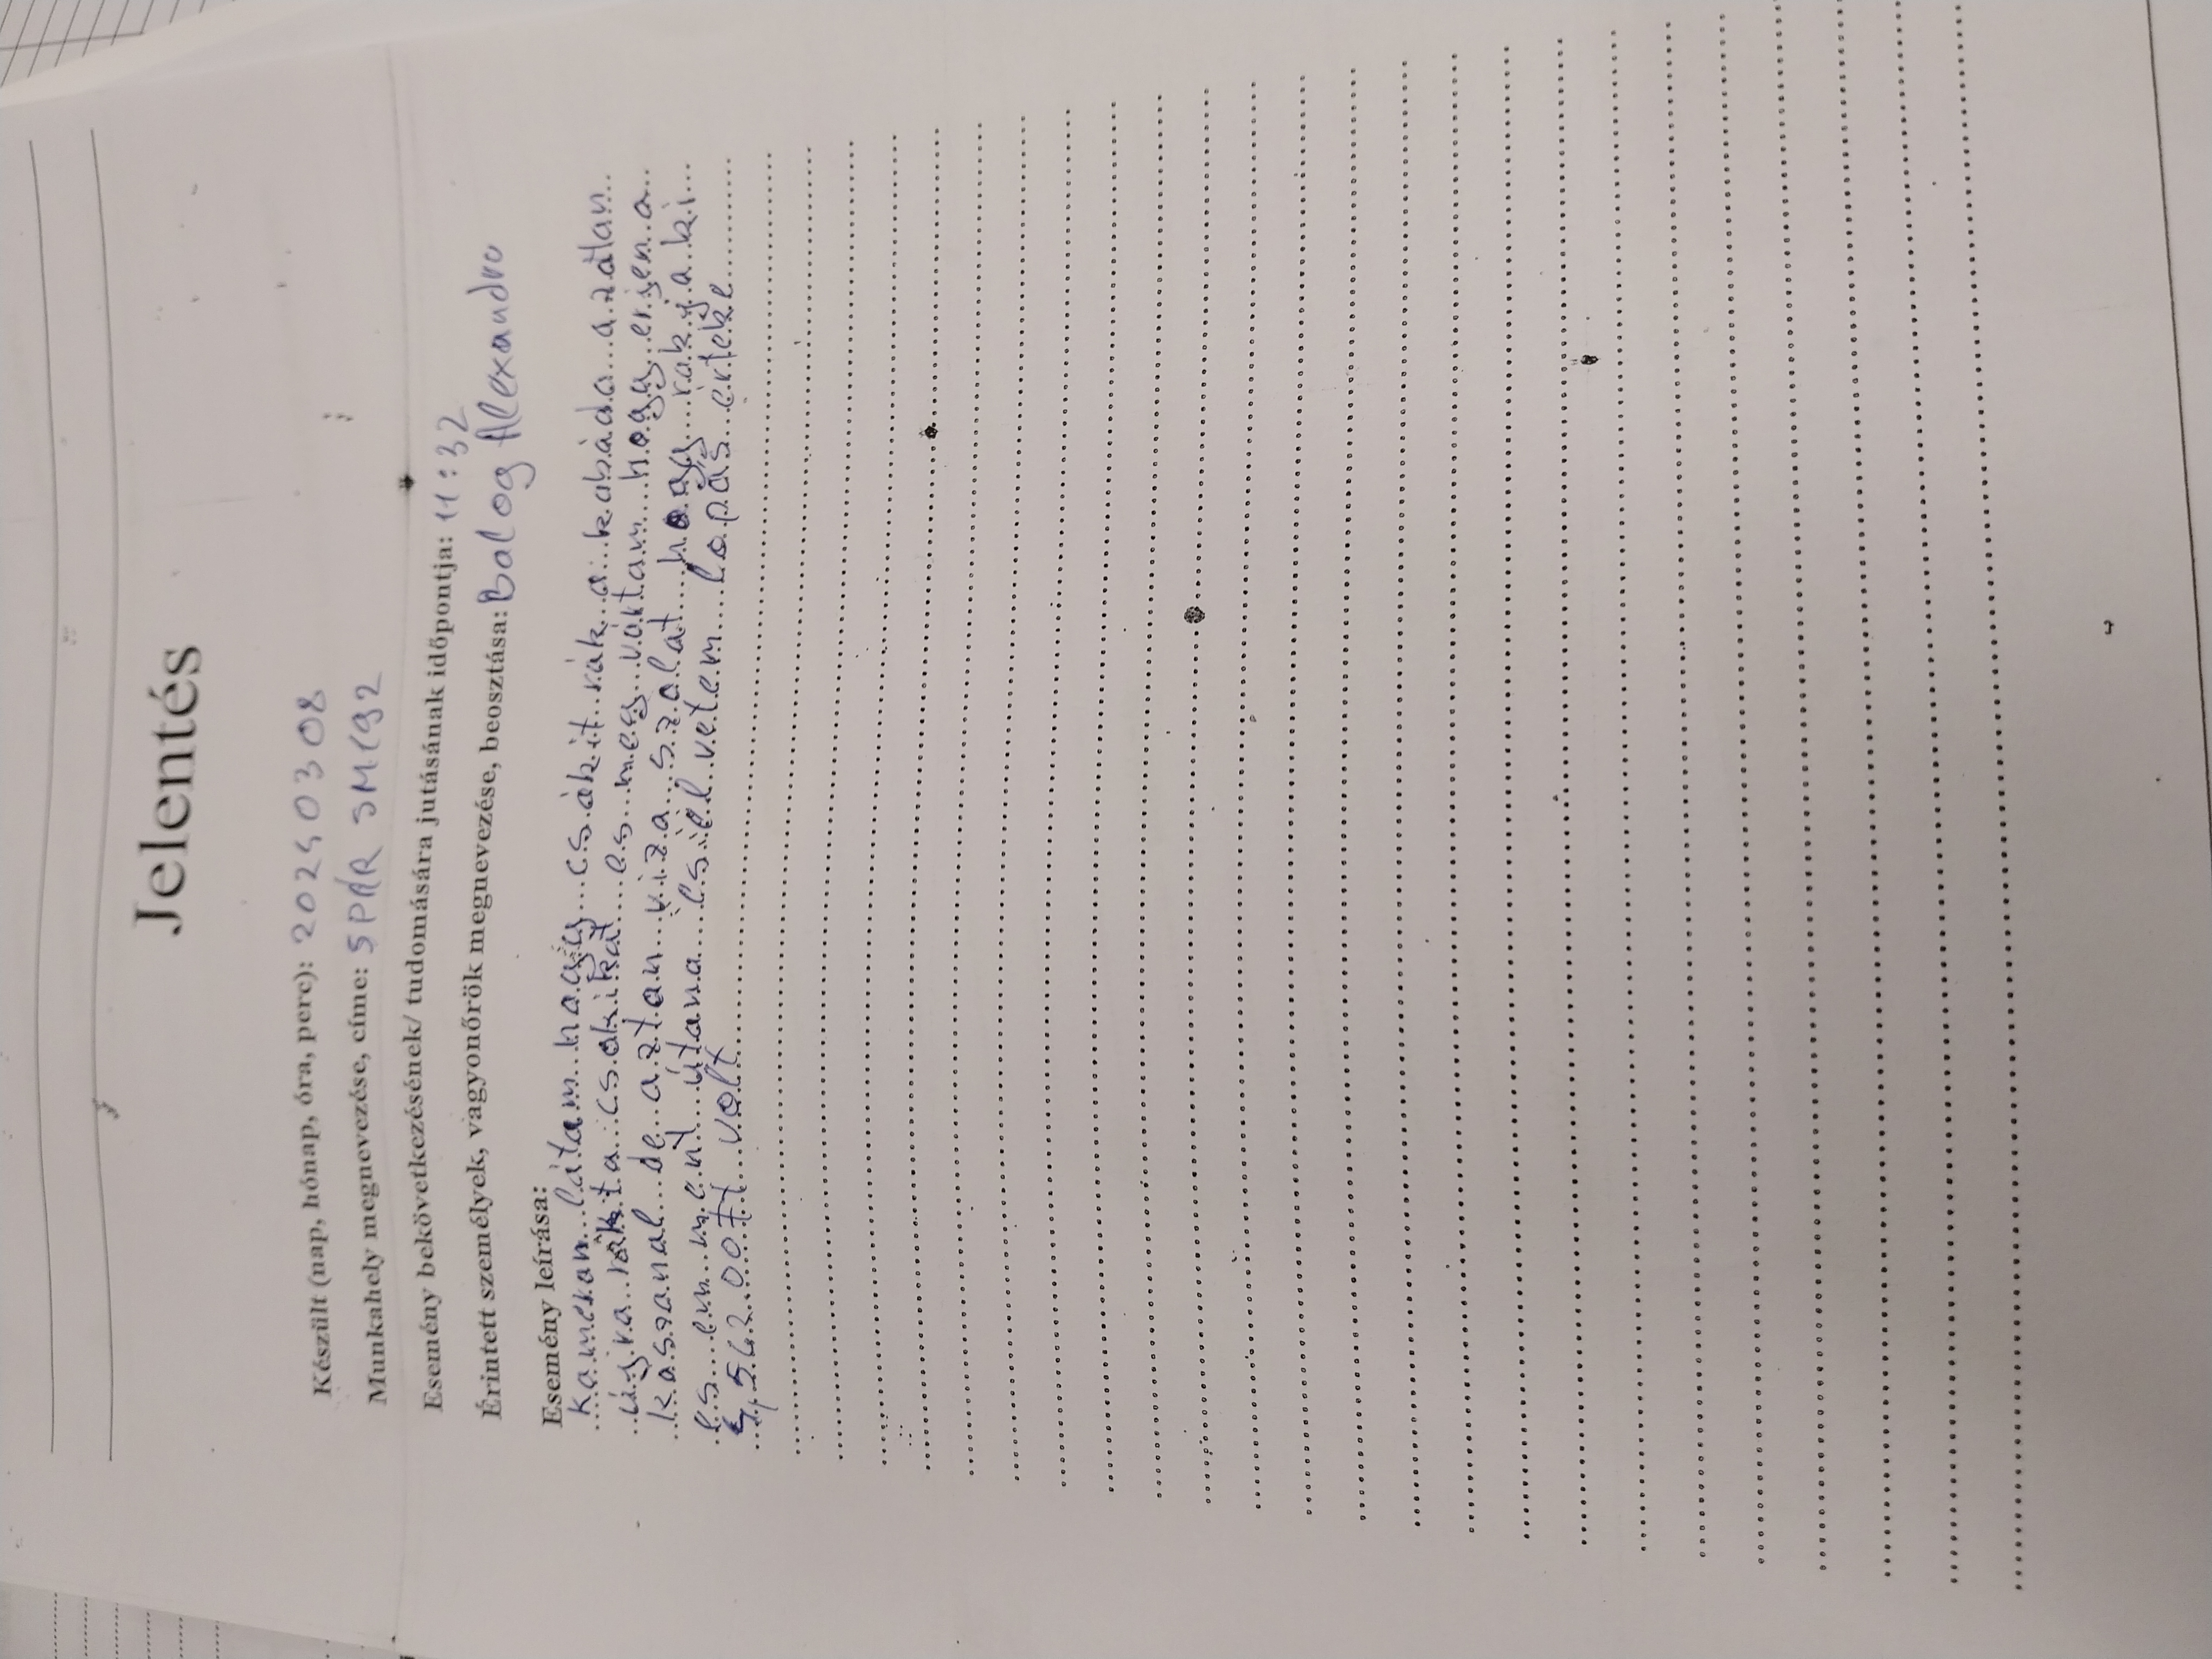 Jelentés
Készült (nap, hónap, óra, perc): 20240308
Munkahely megnevezése, címe: SPÁR SM192
Esemény bekövetkezésének/ tudomására jutásának időpontja: 11:32
Érintett személyek, vagyonőrök megnevezése, beosztása: Balog Alexandro
Esemény leírása:
Kamerán látam hogy csákit rák a kabáda azátlan
újra rakta csakikat es meg vártam hogy erjen a
kasanal de aztan viza szalat hogy rakja ki
es em ment útana és el vetem lopás értéke
4,562.00Ft volt